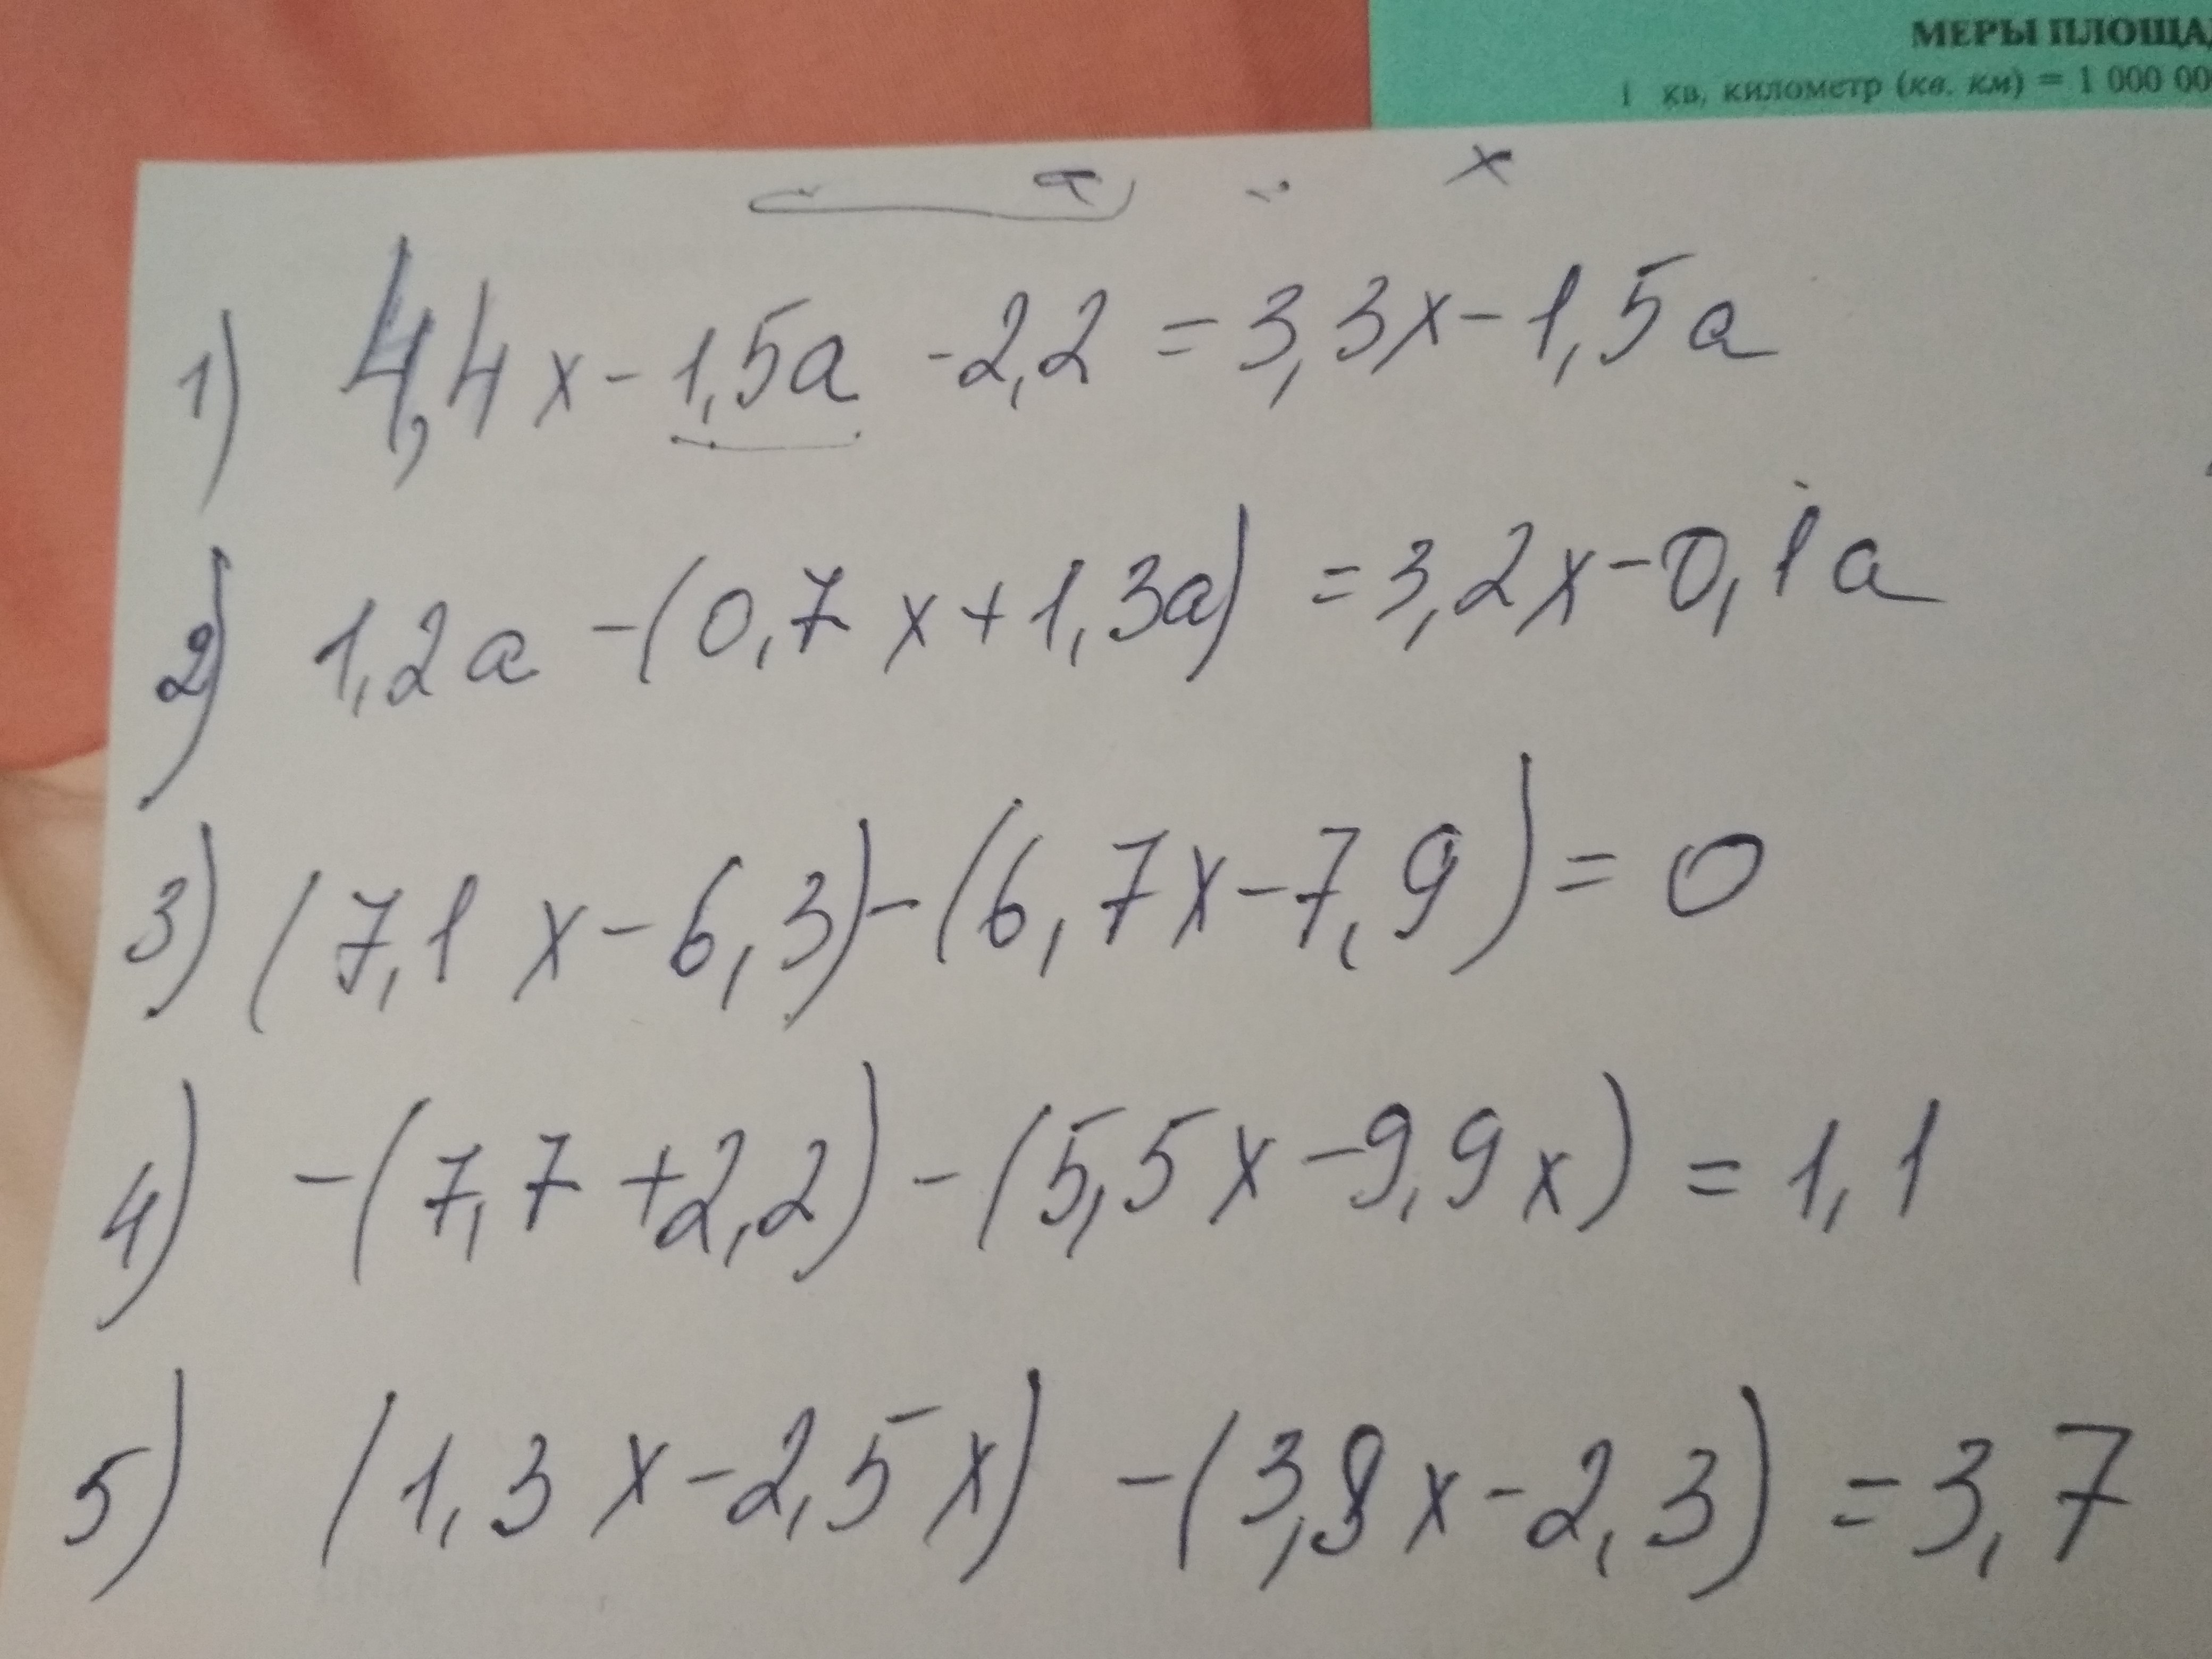 МЕРЫ ПЛОЩАД
1 кв. километр (кв. км) = 1 000 00
x
1) 4,4x - 1,5a - 2,2 = 3,3x - 1,5a
2) 1,2a - (0,7x + 1,3a) = 3,2x - 0,1a
3) (7,1x - 6,3) - (6,7x - 7,9) = 0
4) -(7,7 + 2,2) - (5,5x - 9,9x) = 1,1
5) (1,3x - 2,5x) - (3,8x - 2,3) = 3,7